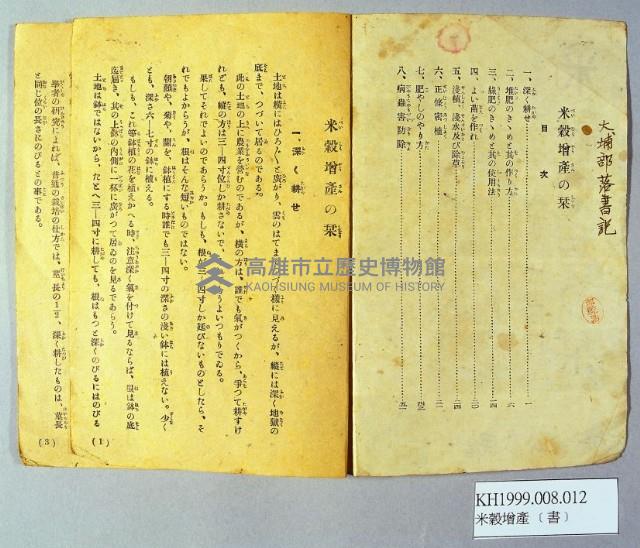 大埔部落書記
米穀增產の栞
目次
一、深く耕せ 一
二、堆肥のきゝめと其の作り方 六
三、綠肥のきゝめと其の使用法
四、よい苗を作れ
五、淺植、淺水及び除草 二四
六、正條密植
七、肥やしのやり方
八、病蟲害防除
米穀增產の栞
一、深く耕せ
土地は橫にはひろ〴〵と廣がり、雲のはてまで
底まで、つづいて居るのである。
此の土地の上に農業を營むのであるが、橫の方は、誰でも氣がつくから、爭つて耕すけ
れども、縱の方は三—四寸位しか耕さないで、
果してそれでよいのであらうか。もしも、根が三—四寸しか延びないものとしたら、そ
れでもよからうが、根はそんな短いものではない。
朝顏や、菊や、蘭を、鉢植にする時誰でも三—四寸の深さの淺い鉢には植えない。少く
とも、深さ六—七寸の鉢に植える。
もしも、これ等鉢植の花を植えかへる時、注意深く氣を付けて見るならば、根は鉢の底
迄屆き、其の上鉢の內側に一杯に廣がつて居るのを見るであらう。
土地は鉢ではないから、たとへ三—四寸に耕しても、根はもつと深くのびるにはのびる
(1)
學者の研究によれば、普通の栽培の仕方では、莖長の1/2、深く耕したものは、莖長
と同じ位の長さにのびるとの事である。
(3)
高雄市立歷史博物館
KAOHSIUNG MUSEUM OF HISTORY
KH1999.008.012
米穀增產〔書〕